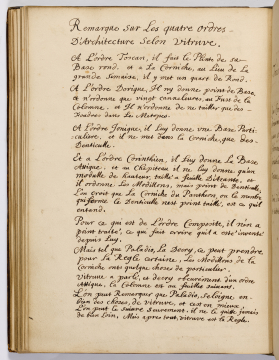 Remarque sur Les quatre ordres
D'Architecture Selon Vitruve.
A L'ordre Toscan, il fait le Plinte de sa
Base rond. et a La Corniche, au Lieu de La
grande Simaise, il y met un quart de Rond.
A L'ordre Dorique, Il ny donne point de Base
et n'ordonne que vingt cannelures, au Fust de la
Colonne. et Il n'ordonne de ne tailler que des
Foudres dans Les Metopes.
A L'ordre Ionique, il Luy donne une Base Parti-
culiere, et il ne met dans la Corniche, que Des
Denticules.
Et a L'ordre Corinthien, il Luy donne La Base
Attique, et au Chapiteau il ne luy donne qu'un
module de hauteur, taillé a feuille
il ordonne Les Modillons, mais point de Denticule,
L'on croit que la Corniche du Panthéon, ou le membre
qui forme le Denticule nest point taillé, est ce qu'il
entend.
Pour ce qui est de L'ordre Composite, il n'en a
point traité, ce qui fait croire qu'il a esté inventé
depuis Luy.
Mais tel que Paladio, La Decry, ce peut prendre
pour La Regle certaine, Les Modillons de la
Corniche ont quelque choses de particulier.
Vitruve a parlé, et decry obscurement d'un ordre
Attique, la Colonne est au feuilles suivans.
L'on peut Remarquer que Paladio, s'eloigne, en
bien des choses, de vitruve, et s'est en mieux,
L'on peut la suivre seurement, il ne le quitte jamais
de bien loin, Mais apres tout, vitruve est la Regle.